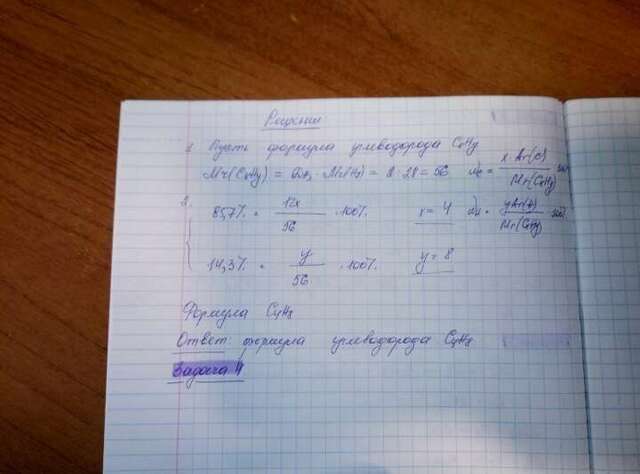 Решение
1. Пусть формула углеводорода CxHy
Mr(CxHy) = · Mr(N2) = 2 · 28 = 56 ω = x · Ar(C) / Mr(CxHy) · 100%
2. 85,7% = 12x / 56 · 100% x = 4 ω = yAr(H) / Mr(CxHy) · 100%
14,3% = y / 56 · 100% y = 8
Формула C4H8
Ответ: формула углеводорода C4H8
Задача 4